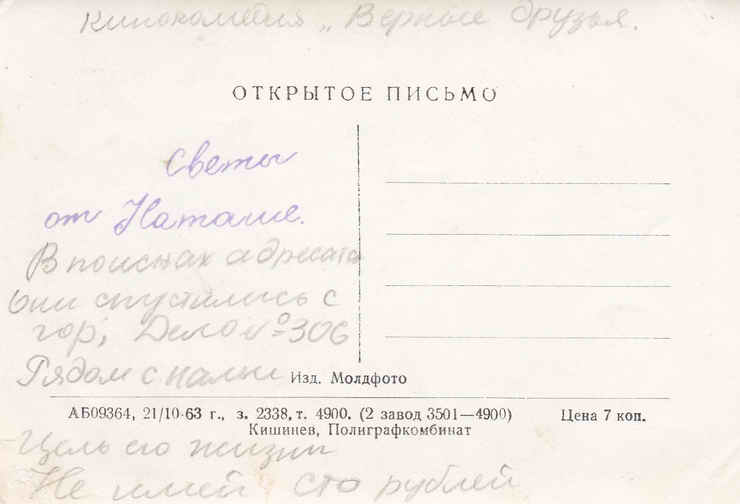 Кинокомедия „Верные друзья.
ОТКРЫТОЕ ПИСЬМО
Светы
от Наташе.
В поисках адресата
Они спустились с
гор, Дело № 306
Рядом с нами
Изд. Молдфото
АБ09364, 21/10-63 г., з. 2338, т. 4900. (2 завод 3501—4900) Цена 7 коп.
Кишинев, Полиграфкомбинат
Цель его жизни
Не имей сто рублей